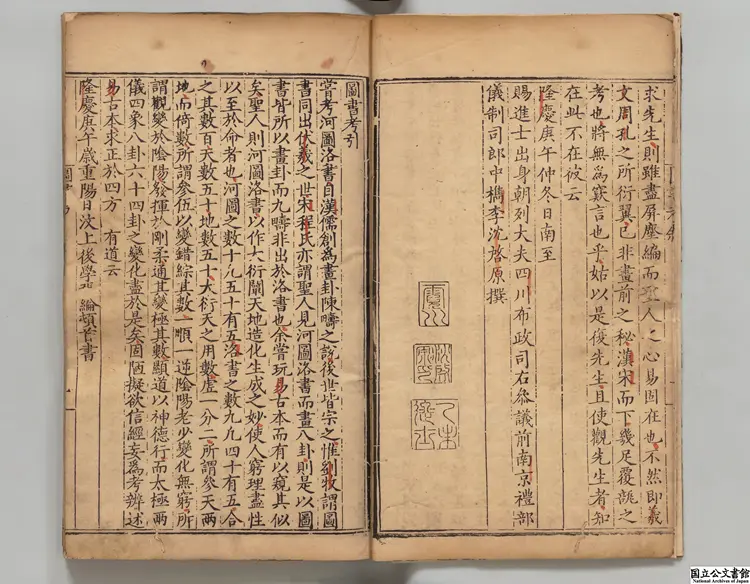 求先生則雖盡屏麈編而聖人之心易固在也不然即羲
文周孔之所衍翼已非畫前之秘漢宋而下幾足覆誂之
考也將無為竅言也乎姑以是復先生且使觀先生者知
在此不在彼云
隆慶庚午仲冬日南至
賜進士出身朝列大夫四川布政司右參議前南京禮部
儀制司郎中檇李沈啓原撰
圖書考引
嘗考河圖洛書自漢儒創為畫卦陳疇之說後世皆宗之惟劉牧謂圖
書同出伏羲之世宋程氏亦謂聖人見河圖洛書而畫八卦則是以圖
書皆所以畫卦而九疇非出於洛書也余嘗玩易古本而有以窺其似
矣聖人則河圖洛書以作大衍闡天地造化生成之妙使人窮理盡性
以至於命者也河圖之數十凡五十有五洛書之數九凡四十有五合
之其數百天數五十地數五十大衍天之用數虛一分二所謂參天兩
地而倚數所謂參伍以變錯綜其數一順一逆陰陽老少變化無窮所
謂觀變於陰陽發揮於剛柔通其變極其數顯道以神德行而太極兩
儀四象八卦六十四卦之變化盡於是矣固陋擬欲信經妄為考辨述
易古本求正於四方 有道云
隆慶庚午歲重陽日汶上後學 綸頓首書
国立公文書館
National Archives of Japan